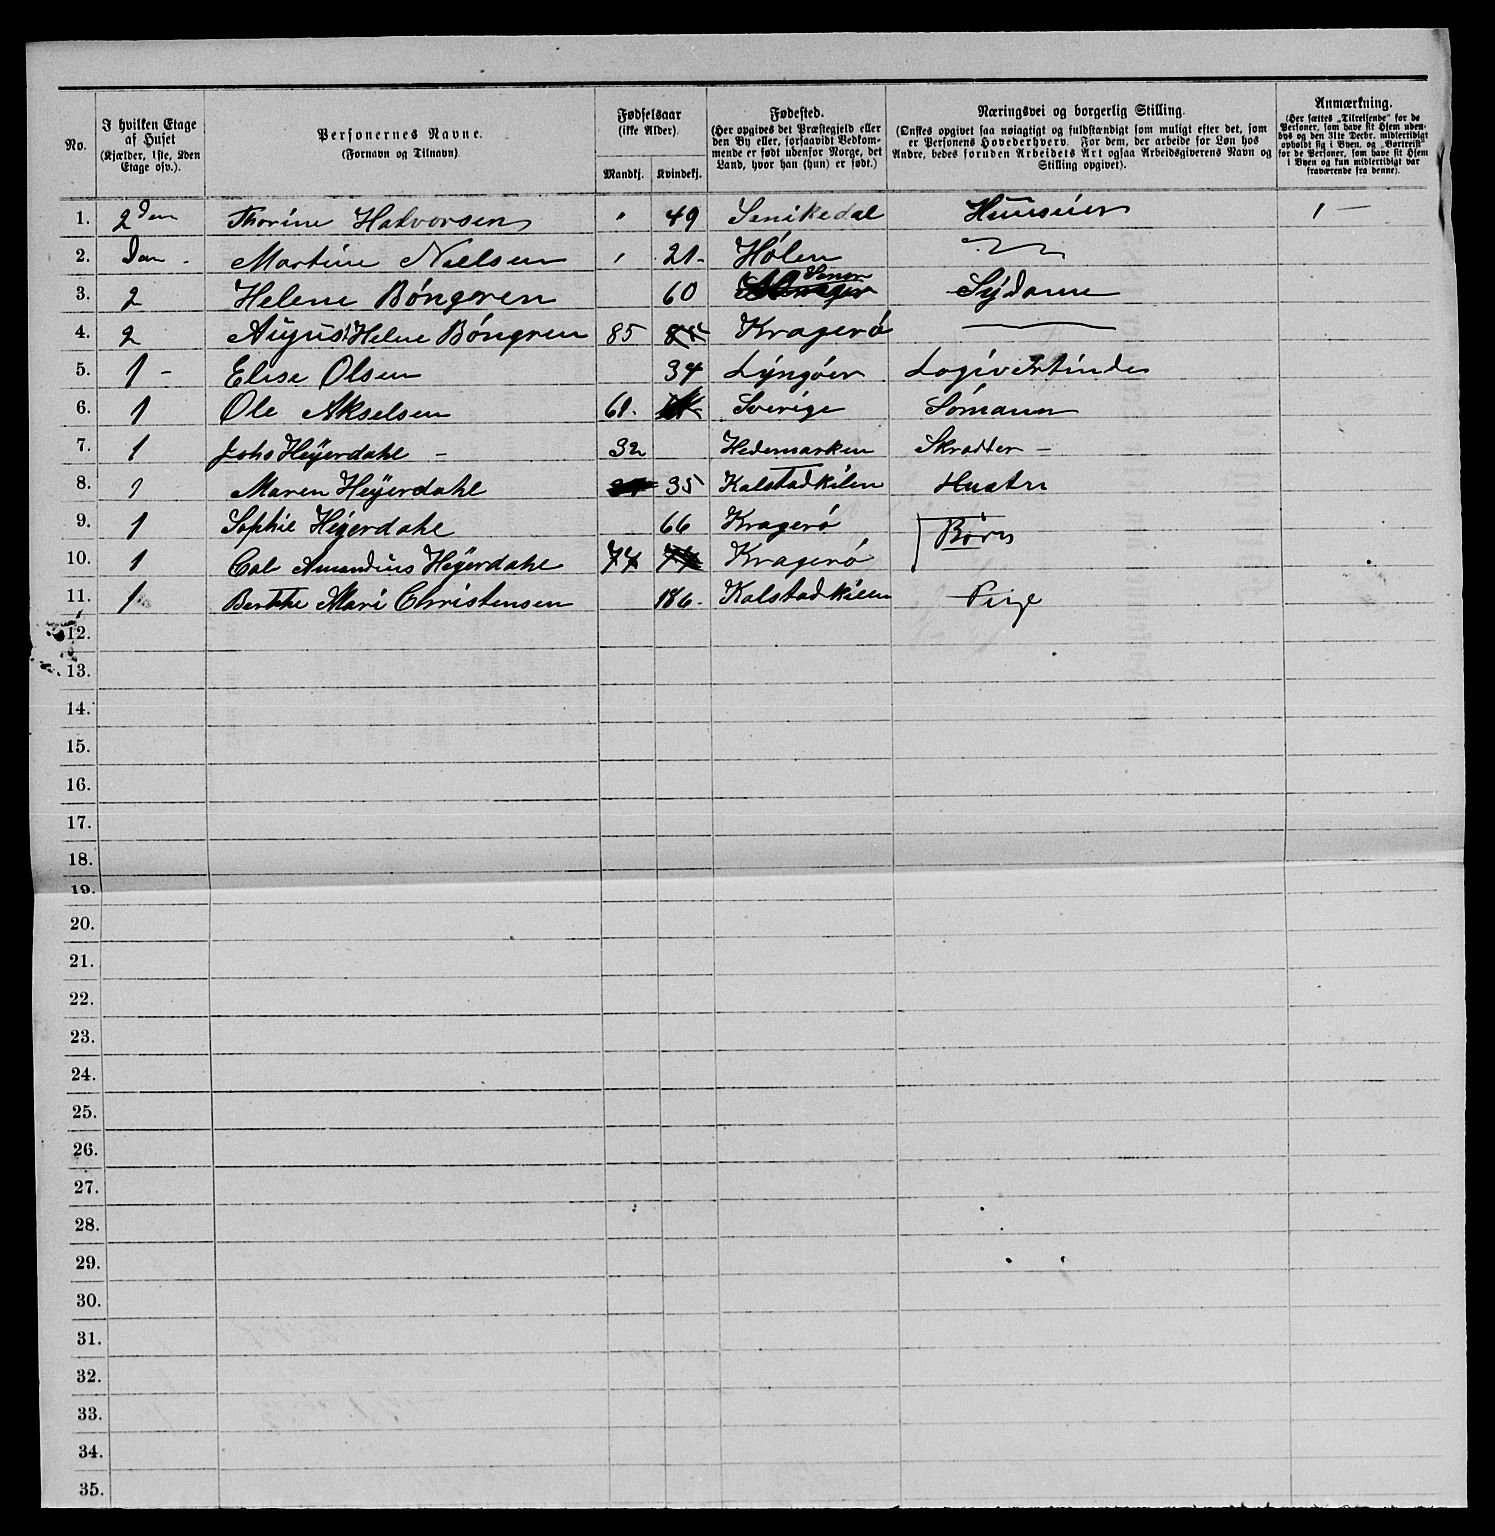 No.
I hvilken Etage af Huset (Kjælder, 1ste, 2den Etage osv.).
Personernes Navne. (Fornavn og Tilnavn)
Fødselsaar (ikke Alder).
Mandkj. Kvindekj.
Fødested. (Her opgives det Præstegjeld eller den By eller, forsaavidt Vedkommende er født udenfor Norge, det Land, hvor han (hun) er født.)
Næringsvei og borgerlig Stilling. (Ønskes opgivet saa nøiagtigt og fuldstændigt som muligt efter det, som er Personens Hovederhverv. For dem, der arbeide for Løn hos Andre, bedes foruden Arbeidets Art ogsaa Arbeidsgiverens Navn og Stilling opgivet).
Anmærkning. (Her sættes „Tilreisende" for de Personer, som have sit Hjem udenbys og den 31te Decbr. midlertidigt opholdt sig i Byen, og „Bortreist" for de Personer, som have sit Hjem i Byen og kun midlertidigt var fraværende fra denne).
1. 2den Thorine Halvorsen " 49 Sanikedal Huuseier 1 —
2. Martine Nielsen " 21. Holen
3. 2 Helene Bóngren 60 Sýdame
4. 2 August Helne Bóngren 85 Kragerø —
5. 1 – Elise Olsen 34 Lýngóer Logivertinde
6. 1 Ole Akselsen 61. Sverige Sómann
7. 1 Johs Heÿerdahl – 32 Hedemarken Skradder –
8. 1 Maren Heÿerdahl 35 Kalstadkilen Hustru
9. 1 Sophie Heÿerdahl 66 Kragerø Børn
10. 1 Cal Amandius Heÿerdahl 74 Kragerø
11. 1 Berthe Mari Christensen 186. Kalstadkilen Pige
12.
13.
14.
15.
16.
17.
18.
19.
20.
21.
22.
23.
24.
25.
26.
27.
28.
29.
30.
31.
32.
33.
34.
35.